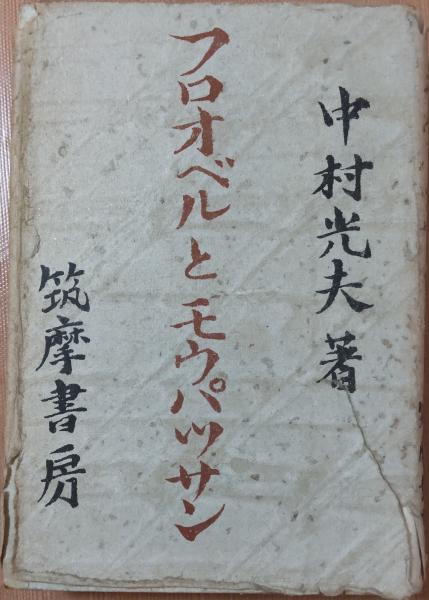 中村光夫著
フロオベルとモウパッサン
筑摩書房